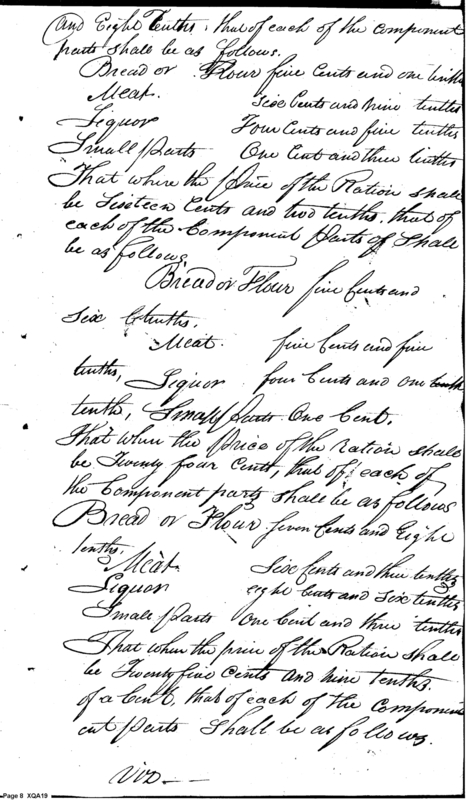 and Eight Tenths, that of each of the component
parts shall be as follows.
Bread or Flour five Cents and one tenth
Meat. Six Cents and nine tenths
Liquor Four Cents and five tenths
Small parts One Cent and three tenths
That where the Price of the Ration shall
be Sixteen Cents and two tenths, that of
each of the Component Parts of Shall
be as follows,
Bread or Flour five Cents and
Six tenths.
Meat five Cents and five
tenths, Liquor four Cents and one tenth
tenth, Small parts One Cent.
That when the Price of the ration shall
be Twenty four Cents, that of each of
the Component parts shall be as follows
Bread or Flour Seven Cents and Eight
tenths.
Meat Six Cents and three tenths
Liquor eight Cents and Six tenths
Small parts One Cent and three tenths
That when the price of the Ration shall
be Twenty five Cents and nine tenths.
of a Cent, that of each of the Compon
ent parts Shall be as follows.
Viz
Page 8 XQA19